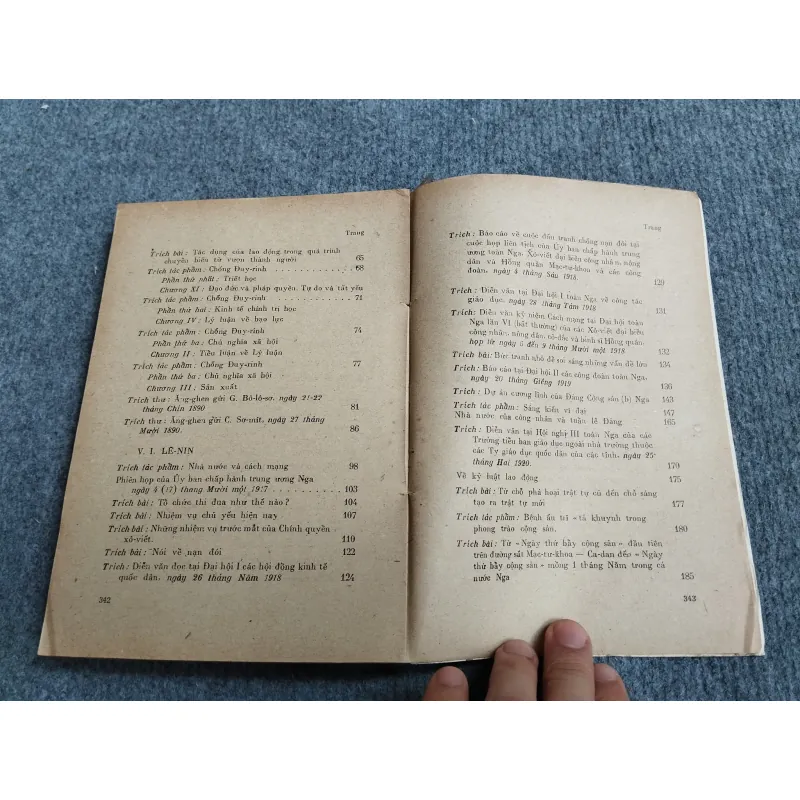 Trang
Trích bài: Tác dụng của lao động trong quá trình
chuyển biến từ vượn thành người 65
Trích tác phẩm: Chống Đuy-rinh . . . . . . . . . . . . 68
Phần thứ nhất: Triết học
Chương XI: Đạo đức và pháp quyền. Tự do và tất yếu
Trích tác phẩm: Chống Đuy-rinh, . . . . . . . . . . . 71
Phần thứ hai: Kinh tế chính trị học
Chương IV: Lý luận về bạo lực
Trích tác phẩm: Chống Đuy-rinh 74
Phần thứ ba: Chủ nghĩa xã hội
Chương II: Tiểu luận về Lý luận
Trích tác phẩm: Chống Đuy-rinh 77
Phần thứ ba: Chủ nghĩa xã hội
Chương III: Sản xuất
Trích thư: Ăng-ghen gửi G. Bô-lô-sơ, ngày 21-22
tháng Chín 1890 81
Trích thư: Ăng-ghen gửi C. Sơ-mít, ngày 27 tháng
Mười 1890. 86
V. I. LÊ-NIN
Trích tác phẩm: Nhà nước và cách mạng 98
Phiên họp của Ủy ban chấp hành trung ương Nga
ngày 4 (17) tháng Mười một 1917 . . . . . . . . . . . 103
Trích bài: Tổ chức thi đua như thế nào? 104
Trích bài: Nhiệm vụ chủ yếu hiện nay 107
Trích bài: Những nhiệm vụ trước mắt của Chính quyền
xô-viết. 110
Trích bài: Nói về nạn đói 122
Trích: Diễn văn đọc tại Đại hội I các hội đồng kinh tế
quốc dân, ngày 26 tháng Năm 1918 124
342
Trang
Trích: Báo cáo về cuộc đấu tranh chống nạn đói tại
cuộc họp liên tịch của Ủy ban chấp hành trung
ương toàn Nga, Xô-viết đại biểu công nhân, nông
dân và Hồng quân Mạc-tư-khoa và các công
đoàn, ngày 4 tháng Sáu 1918. 129
Trích: Diễn văn tại Đại hội I toàn Nga về công tác
giáo dục, ngày 28 tháng Tám 1918 131
Trích: Diễn văn kỷ niệm Cách mạng tại Đại hội toàn
Nga lần VI (bất thường) của các Xô-viết đại biểu
công nhân, nông dân, cô-dắc và binh sĩ Hồng quân,
họp từ ngày 6 đến 9 tháng Mười một 1918. 132
Trích bài: Bức tranh nhỏ để soi sáng những vấn đề lớn 134
Trích: Báo cáo tại Đại hội II các công đoàn toàn Nga,
ngày 20 tháng Giêng 1919 136
Trích: Dự án cương lĩnh của Đảng Cộng sản (b) Nga 143
Trích tác phẩm: Sáng kiến vĩ đại 147
Nhà nước của công nhân và tuần lễ Đảng 165
Trích: Diễn văn tại Hội nghị III toàn Nga của các
Trưởng tiểu ban giáo dục ngoài nhà trường thuộc
các Ty giáo dục quốc dân của các tỉnh, ngày 25
tháng Hai 1920. 170
Về kỷ luật lao động 175
Trích bài: Từ chỗ phá hoại trật tự cũ đến chỗ sáng
tạo ra trật tự mới 177
Trích tác phẩm: Bệnh ấu trĩ « tả khuynh trong
phong trào cộng sản. 180
Trích bài: Từ « Ngày thứ bảy cộng sản » đầu tiên
trên đường sắt Mạc-tư-khoa — Ca-dan đến « Ngày
thứ bảy cộng sản » mồng 1 tháng Năm trong cả
nước Nga 185
343